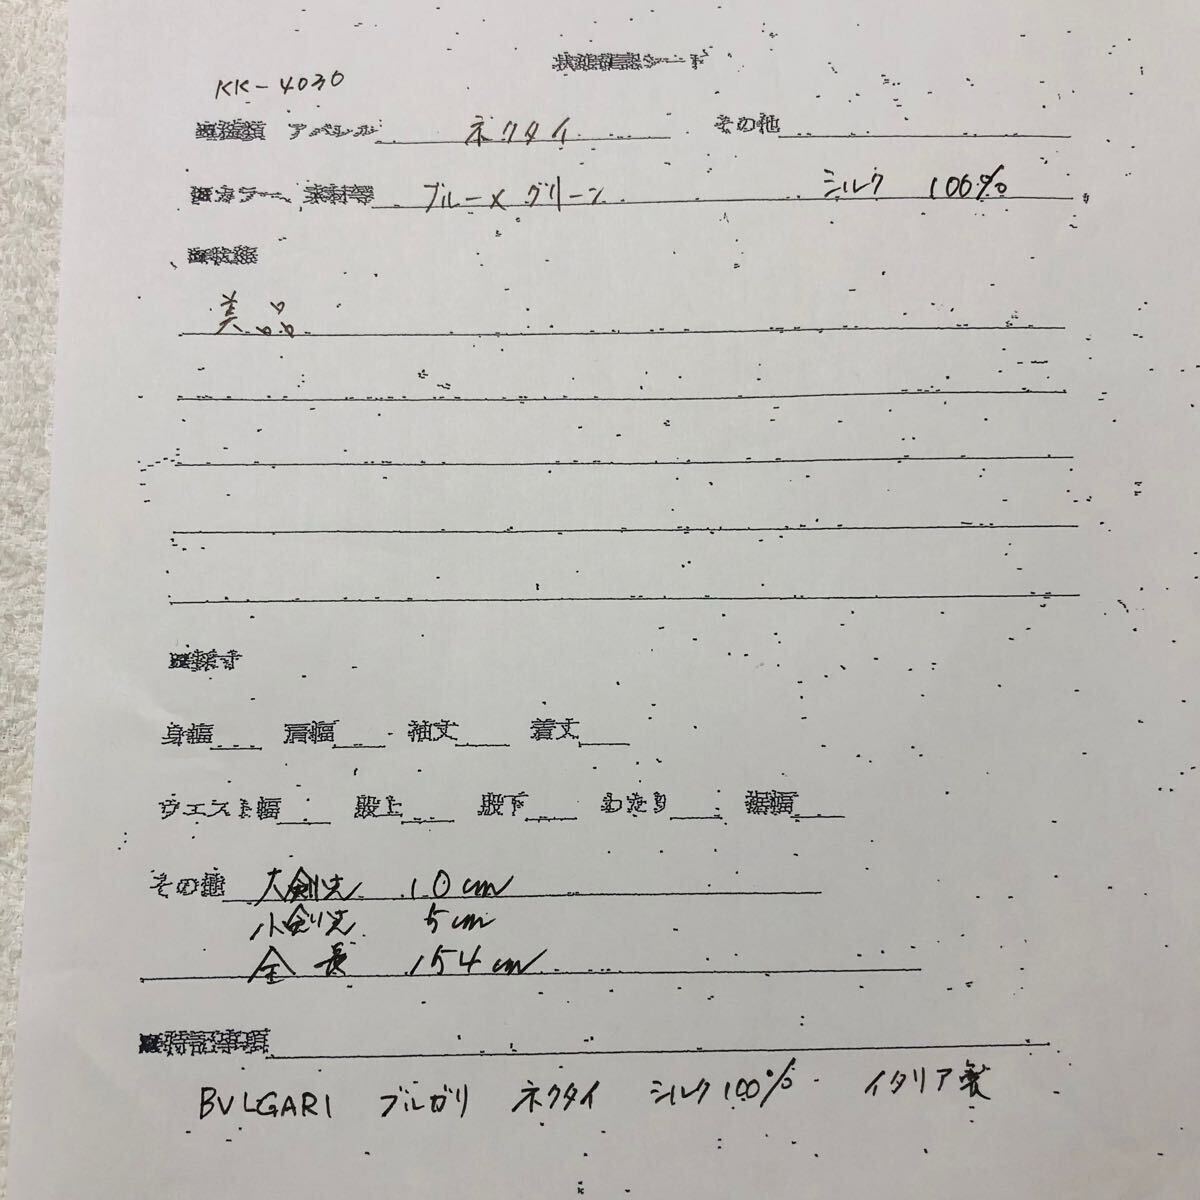 状態確認シート
KK-4030
■種類 アパレル ネクタイ その他
■カラー、素材等 ブルー×グリーン シルク 100%
■状態
美品
■採寸
身幅 肩幅 袖丈 着丈
ウエスト幅 股上 股下 わたり 裾幅
その他 大剣先 10cm
小剣先 5cm
全長 154cm
■特記事項
BVLGARI ブルガリ ネクタイ シルク100% イタリア製